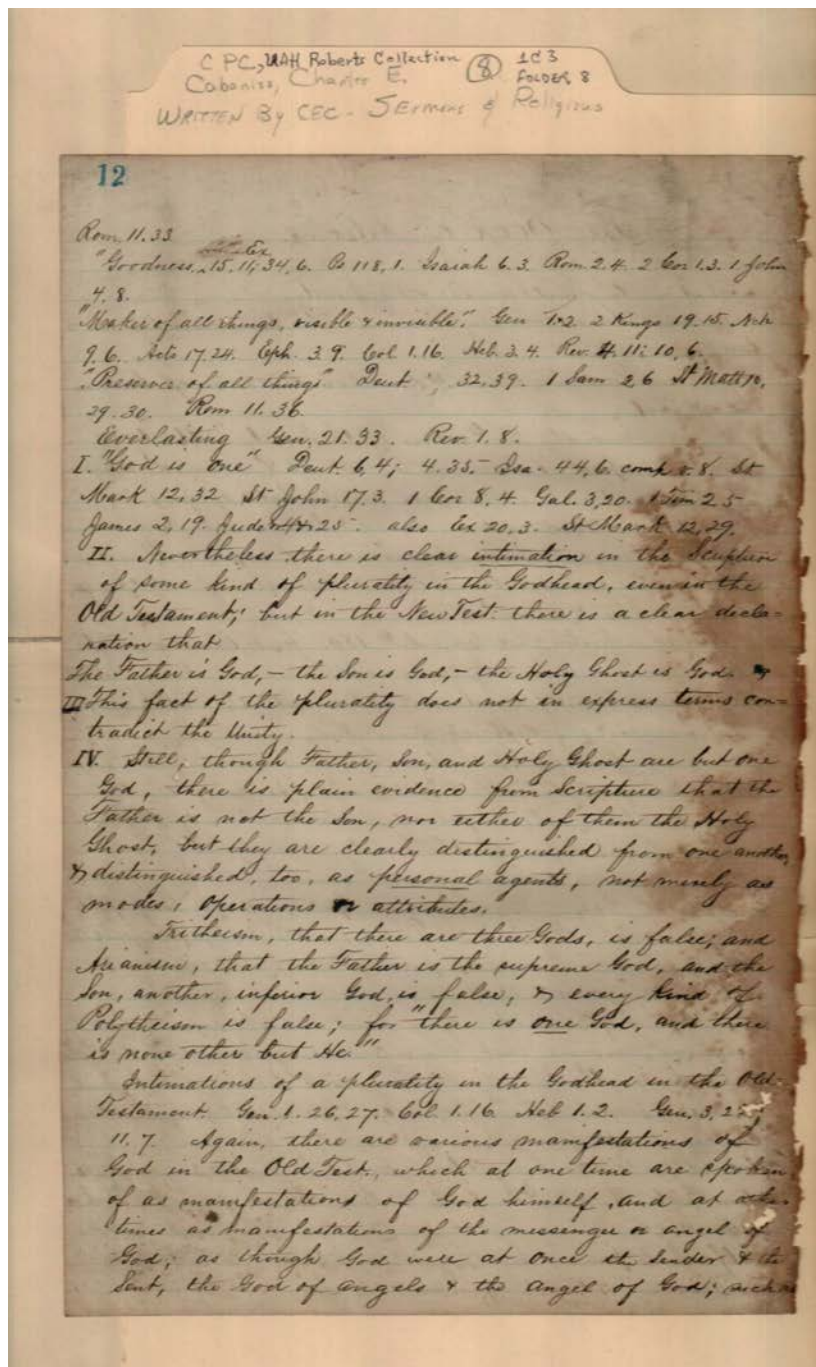 C PC, UAH Roberts Collection 8 1C3
Cabaniss, Charles E. FOLDER 8
WRITTEN By CEC - SERMONS & Religious
12
Rom. 11.33
Ex
"Goodness, 15, 11; 34, 6. Ps 118, 1. Isaiah 6.3. Rom. 2.4. 2 Cor 1.3. 1 John
4. 8.
"Maker of all things, visible & invisible". Gen 1.2. 2 Kings 19.15. Neh
9. 6. Acts 17.24. Eph. 3.9. Col 1.16. Heb. 3.4. Rev. 4. 11; 10, 6.
"Preserver of all things" Deut 32.39. 1 Sam 2 6 St Matt 10,
29. 30. Rom 11. 36.
Everlasting Gen. 21. 33. Rev. 1. 8.
I. "God is one" Deut. 6, 4; 4. 35. Isa. 44, 6. comp v. 8. St
Mark 12, 32 St John 17. 3. 1 Cor 8, 4. Gal. 3, 20. 1 Tim 2 5
James 2, 19. Jude 4 & 25. also Ex 20. 3. St Mark 12, 29.
II. Nevertheless there is clear intimation in the Scripture
of some kind of plurality in the Godhead, even in the
Old Testament; but in the New Test. there is a clear decla-
ration that
The Father is God, - the Son is God, - the Holy Ghost is God. &
III This fact of the plurality does not in express terms con-
tradict the Unity.
IV. Still, though Father, Son, and Holy Ghost are but one
God, there is plain evidence from Scripture that the
Father is not the Son, nor either of them the Holy
Ghost, but they are clearly distinguished from one another,
& distinguished, too, as personal agents, not merely as
modes, operations or attributes.
Tritheism, that there are three Gods, is false; and
Arianism, that the Father is the supreme God, and the
Son, another, inferior God, is false, & every kind of
Polytheism is false; for "there is one God, and there
is none other but He."
Intimations of a plurality in the Godhead in the Old
Testament. Gen. 1. 26, 27. Col. 1.16. Heb 1. 2. Gen. 3, 22;
11. 7. Again, there are various manifestations of
God in the Old Test., which at one time are spoken
of as manifestations of God himself, and at other
times as manifestations of the messenger or angel of
God; as though God were at once the Sender & the
Sent, the God of angels & the angel of God; such as